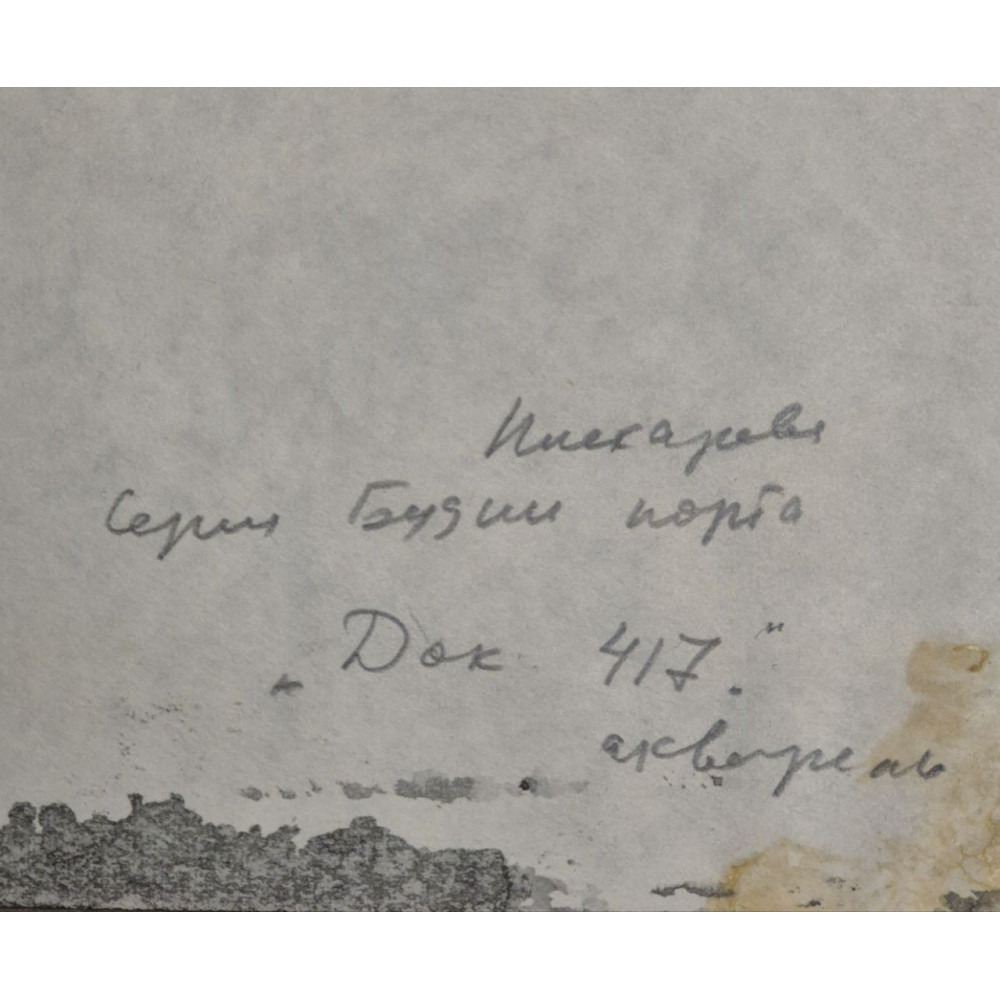 Серия Будни порта
„Док 417."
акварель